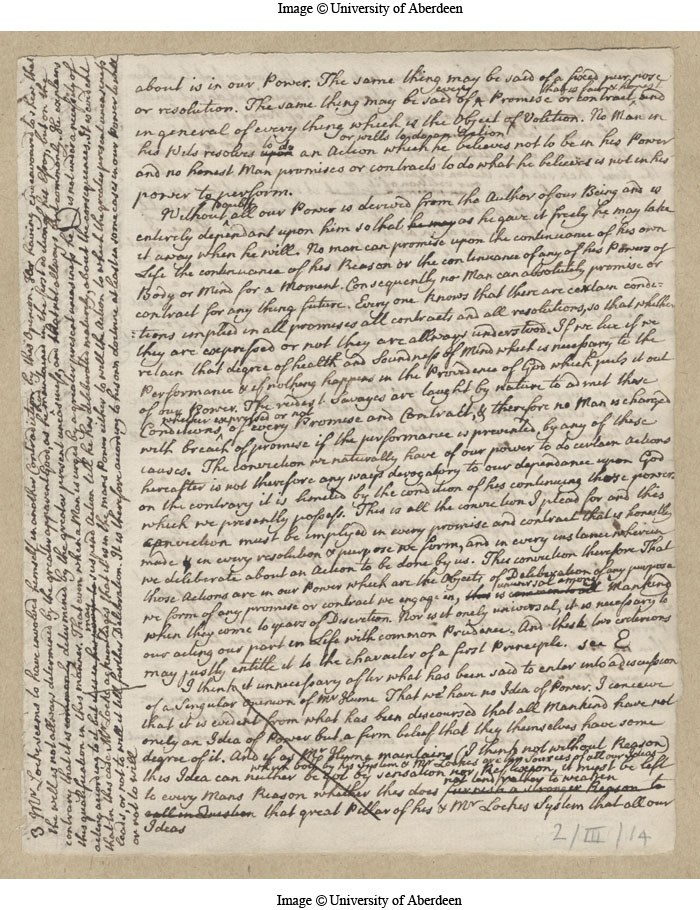 Image © University of Aberdeen
about is in our Power. The same thing may be said of a fixed purpose
or resolution. The same thing may be said of every Promise or contract, that is fair & honest and
in general of every thing which is the Object of Volition. No Man in
his Wits resolves or wills to do upon an Action which he believes not to be in his Power
and no honest Man promises or contracts to do what he believes is not in his
power to perform.
Without doubt all our Power is derived from the Author of our Being and is
entirely dependant upon him so that he may as he gave it freely he may take
it away when he will. No man can promise upon the continuance of his own
Life the continuance of his Reason or the continuance of any of his Powers of
Body or Mind for a Moment. Consequently no Man can absolutely promise or
contract for any thing future. Every one knows that there are certain condi-
-tions implied in all promises all contracts and all resolutions, so that whethe-
they are expressed or not they are allways understood. If we live if we
retain that degree of health and Soundness of Mind which is necessary to the
Performance & if nothing happens in the Providence of God which puts it out
of our Power. The rudest Savages are taught by nature to admit these
Conditions whether expressed or not of every Promise and Contract, & therefore no Man is charged
with breach of promise if the performance is prevented by any of these
causes. The conviction we naturally have of our power to do certain actions
hereafter is not therefore any ways derogatory to our dependance upon God
on the contrary it is limited by the condition of his continuing those powers
which we presently possess. This is all the conviction I plead for and this
conviction must be implyed in every promise and contract that is honestly
made & in every resolution & purpose we form, and in every instance wherein
we deliberate about an Action to be done by us. This conviction therefore That
those Actions are in our Power which are the Objects of Deliberation of any purpose
we form of any promise or contract we engage in, is universal among Mankind
when they come to years of Discretion. Nor is it onely universal, it is necessary to
our acting our part in Life with common Prudence. And these two criterions
may justly entitle it to the character of a first Principle. see E
I think it unnecessary after what has been said to enter into a discussion
of a Singular opinion of Mr Hume That we have no Idea of Power. I conceive
that it is evident from what has been discoursed that all Mankind have not
onely an Idea of Power but a firm belief that they themselves have some
degree of it. And if as Mr Hume maintains (I think not without Reason)
this Idea can neither be got by sensation nor Reflexion, which both by his System & Mr Lockes are the Sources of all our Ideas, it must be left
to every Mans Reason whether this does not rather to weaken furnish a stronger Reason to
call in Question that great Pillar of his & Mr Lockes System that all our
Ideas
3 Mr Locke seems to have involved himself in another Contradiction by this Opinion. For having endeavoured to show that
the will is not allways determined by the greater apparent good, as he maintained in the first edition of his Essay, but on the
contrary that it is determined by the greater present uneasiness, in the next allowing it commonly. He explains
this qualification in this manner. That even when a Man is urged by a greater present uneasiness he is not under a necessity of
acting according to it but may suspend Action till he has deliberated maturely about the consequences. It is evident
that in this case Mr Locke acknowledges that it is in the mans Power either to will the Action to which the greater present uneasiness
leads, or not to will it till further Deliberation. It is therefore according to his own doctrine at least in some cases in our Power to will
or not to will
2/III/14
Image © University of Aberdeen